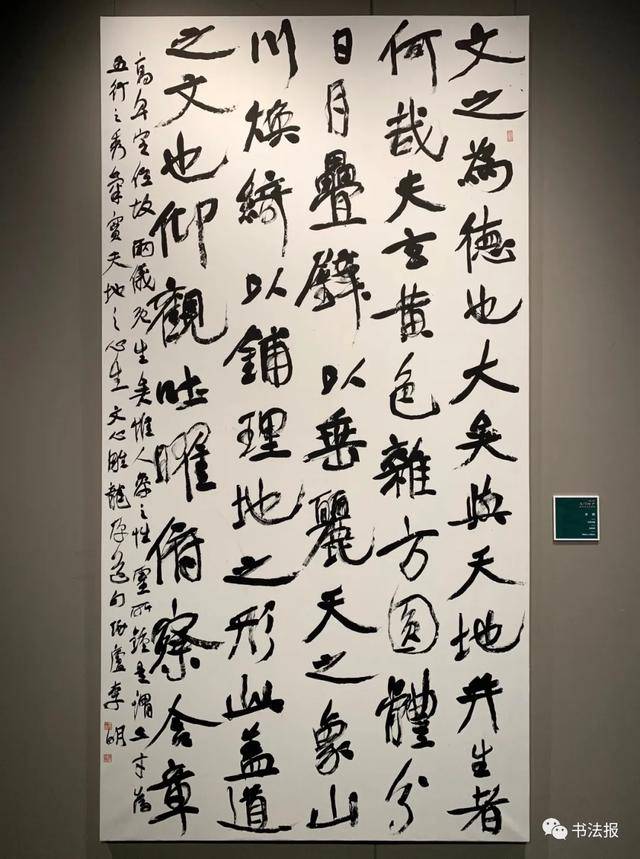 文之為德也大矣與天地并生者
何哉夫玄黄色雜方圓體分
日月疊璧以垂麗天之象山
川煥綺以鋪理地之形此蓋道
之文也仰觀吐曜俯察含章
高卑定位故兩儀既生矣惟人参之性靈所鍾是謂三才為
五行之秀氣實天地之心生文心雕龍原道句廬李明
书法报